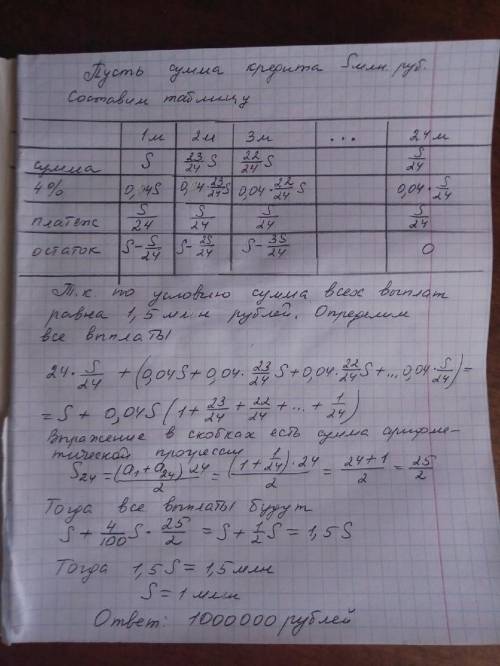 Пусть сумма кредита S млн. руб.
Составим таблицу
1м 2м 3м ... 24м
сумма S 23/24 S 22/24 S S/24
4% 0,04S 0,04·23/24 S 0,04·22/24 S 0,04·S/24
платеж S/24 S/24 S/24 S/24
остаток S-S/24 S-2S/24 S-3S/24 0
Т.к. по условию сумма всех выплат
равна 1,5 млн рублей. Определим
все выплаты
24·S/24 + (0,04S+0,04·23/24 S+0,04·22/24 S+...0,04·S/24)=
= S + 0,04S (1+23/24+22/24+...+1/24)
Выражение в скобках есть сумма арифме-
тической прогрессии
S24=(a1+a24)·24/2=(1+1/24)·24/2=24+1/2=25/2
Тогда все выплаты будут
S+4/100 S·25/2=S+1/2 S=1,5S
Тогда 1,5S=1,5млн
S=1 млн
Ответ: 1000000 рублей